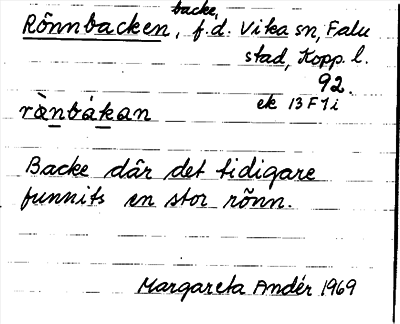 backe,
Rönnbacken, f.d. Vika sn, Falu
stad, Kopp. l.
92.
ek 13F1i
rànbákan
Backe där det tidigare
funnits en stor rönn.
Margareta Andér 1969